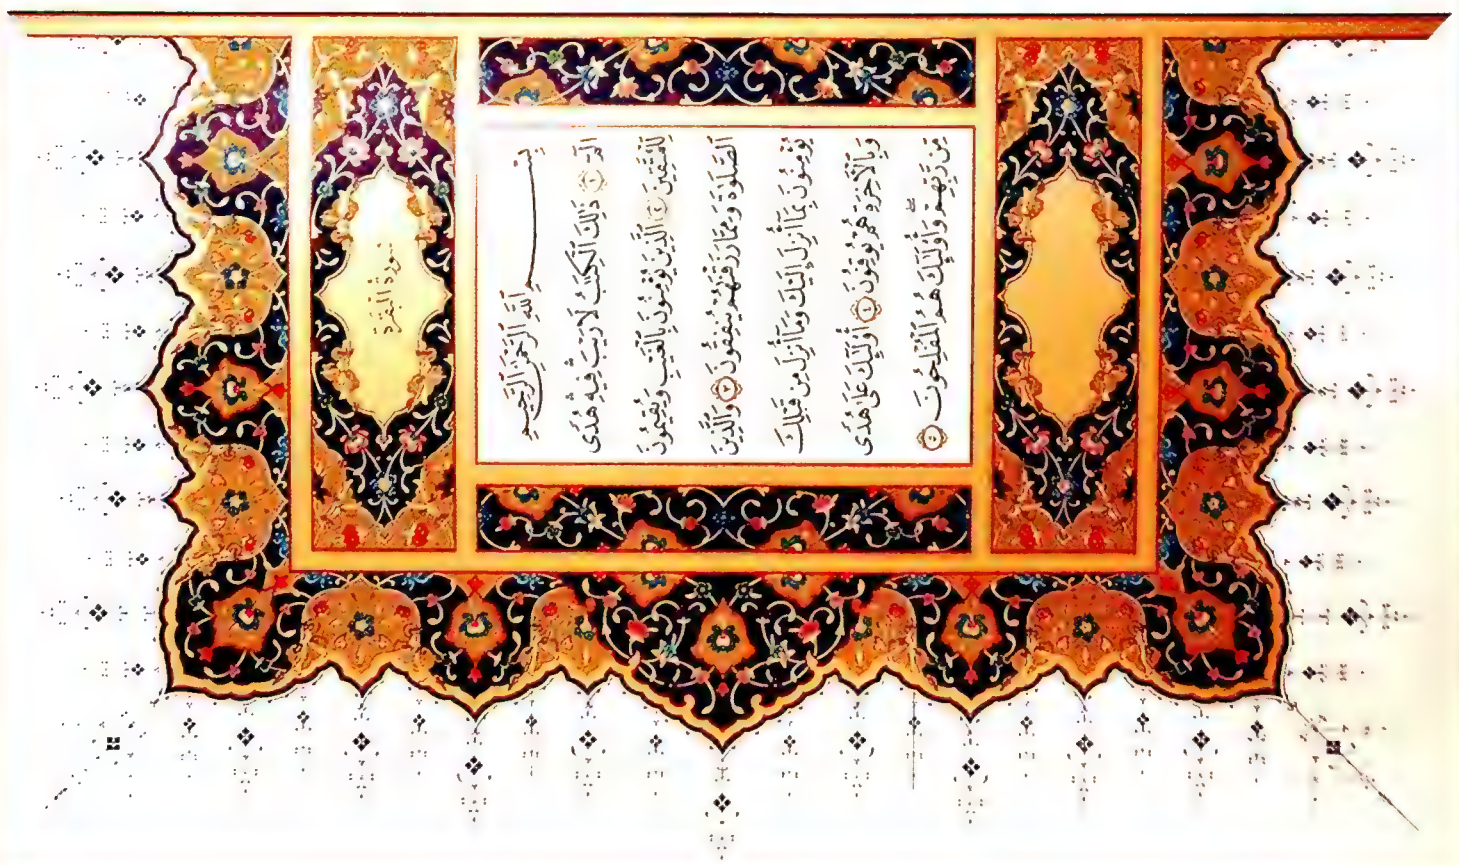 سورة البقرة
بِسْمِ ٱللَّهِ ٱلرَّحْمَٰنِ ٱلرَّحِيمِ
الٓمٓ ١ ذَٰلِكَ ٱلْكِتَٰبُ لَا رَيْبَ فِيهِ هُدًى
لِّلْمُتَّقِينَ ٢ ٱلَّذِينَ يُؤْمِنُونَ بِٱلْغَيْبِ وَيُقِيمُونَ
ٱلصَّلَوٰةَ وَمِمَّا رَزَقْنَٰهُمْ يُنفِقُونَ ٣ وَٱلَّذِينَ
يُؤْمِنُونَ بِمَآ أُنزِلَ إِلَيْكَ وَمَآ أُنزِلَ مِن قَبْلِكَ
وَبِٱلْءَاخِرَةِ هُمْ يُوقِنُونَ ٤ أُو۟لَٰٓئِكَ عَلَىٰ هُدًى
مِّن رَّبِّهِمْ وَأُو۟لَٰٓئِكَ هُمُ ٱلْمُفْلِحُونَ ٥